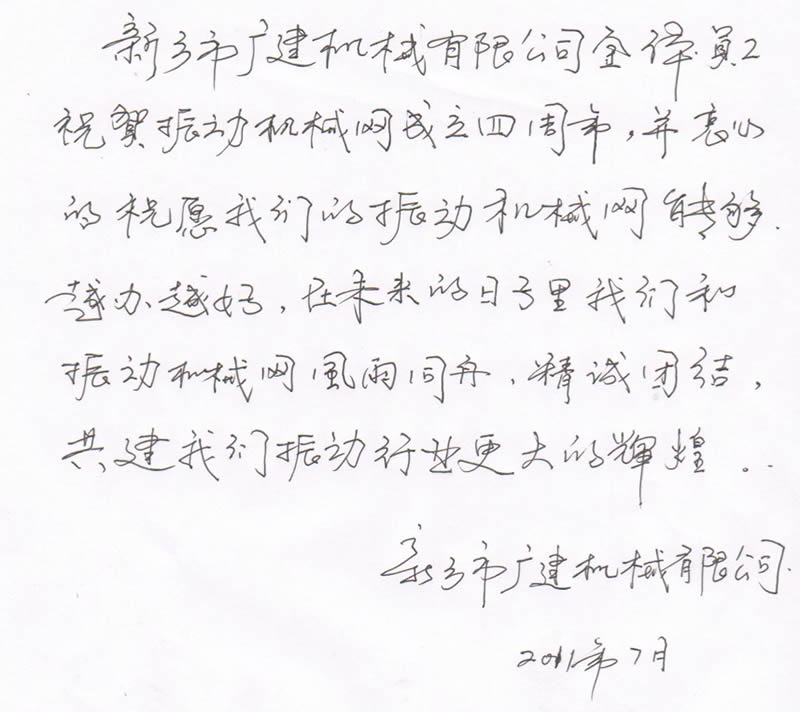 新乡市广建机械有限公司全体员工
祝賀振动机械网成立四周年，并衷心
的祝愿我们的振动机械网能够
越办越好，在未来的日子里我们和
振动机械网風雨同舟，精诚团结，
共建我们振动行业更大的輝煌...
新乡市广建机械有限公司
2011年7月